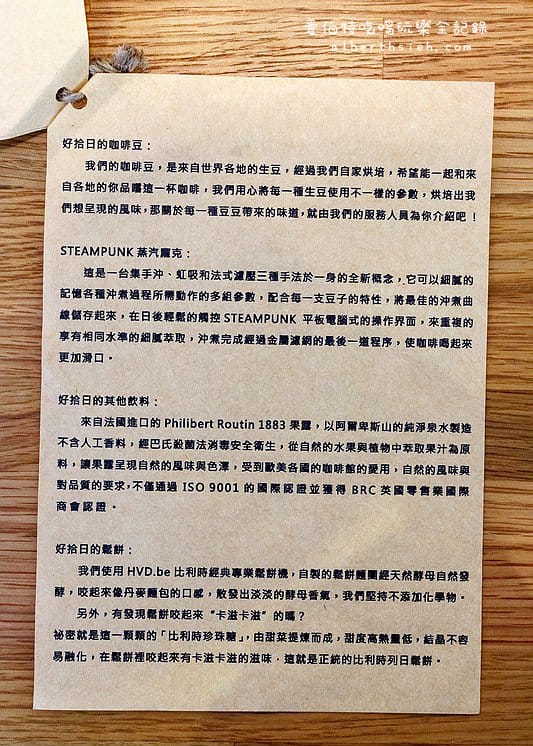 曼伯特吃喝玩樂全記錄
alberthsieh.com
好拾日的咖啡豆：
我們的咖啡豆，是來自世界各地的生豆，經過我們自家烘培，希望能一起和來
自各地的你品嚐這一杯咖啡，我們用心將每一種生豆使用不一樣的參數，烘培出我
們想呈現的風味，那關於每一種豆豆帶來的味道，就由我們的服務人員為你介紹吧！
STEAMPUNK 蒸汽龐克：
這是一台集手沖、虹吸和法式濾壓三種手法於一身的全新概念，它可以細膩的
記憶各種沖煮過程所需動作的多組參數，配合每一支豆子的特性，將最佳的沖煮曲
線儲存起來，在日後輕鬆的觸控 STEAMPUNK 平板電腦式的操作界面，來重複的
享有相同水準的細膩萃取，沖煮完成經過金屬濾網的最後一道程序，使咖啡喝起來
更加滑口。
好拾日的其他飲料：
來自法國進口的 Philibert Routin 1883 果露，以阿爾卑斯山的純淨泉水製造
不含人工香料，經巴氏殺菌法消毒安全衛生，從自然的水果與植物中萃取果汁為原
料，讓果露呈現自然的風味與色澤，受到歐美各國的咖啡館的愛用，自然的風味與
對品質的要求，不僅通過 ISO 9001 的國際認證並獲得 BRC 英國零售業國際
商會認證。
好拾日的鬆餅：
我們使用 HVD.be 比利時經典專業鬆餅機，自製的鬆餅麵糰經天然酵母自然發
酵，咬起來像丹麥麵包的口感，散發出淡淡的酵母香氣，我們堅持不添加化學物。
另外，有發現鬆餅咬起來“卡滋卡滋”的嗎？
祕密就是這一顆顆的「比利時珍珠糖」，由甜菜提煉而成，甜度高熱量低，結晶不容
易融化，在鬆餅裡咬起來有卡滋卡滋的滋味，這就是正統的比利時列日鬆餅。